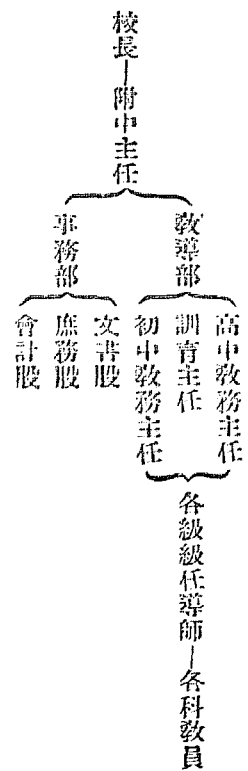 校長—附中主任
教導部
高中教務主任
訓育主任
初中教務主任
各級級任導師—各科教員
事務部
文書股
庶務股
會計股